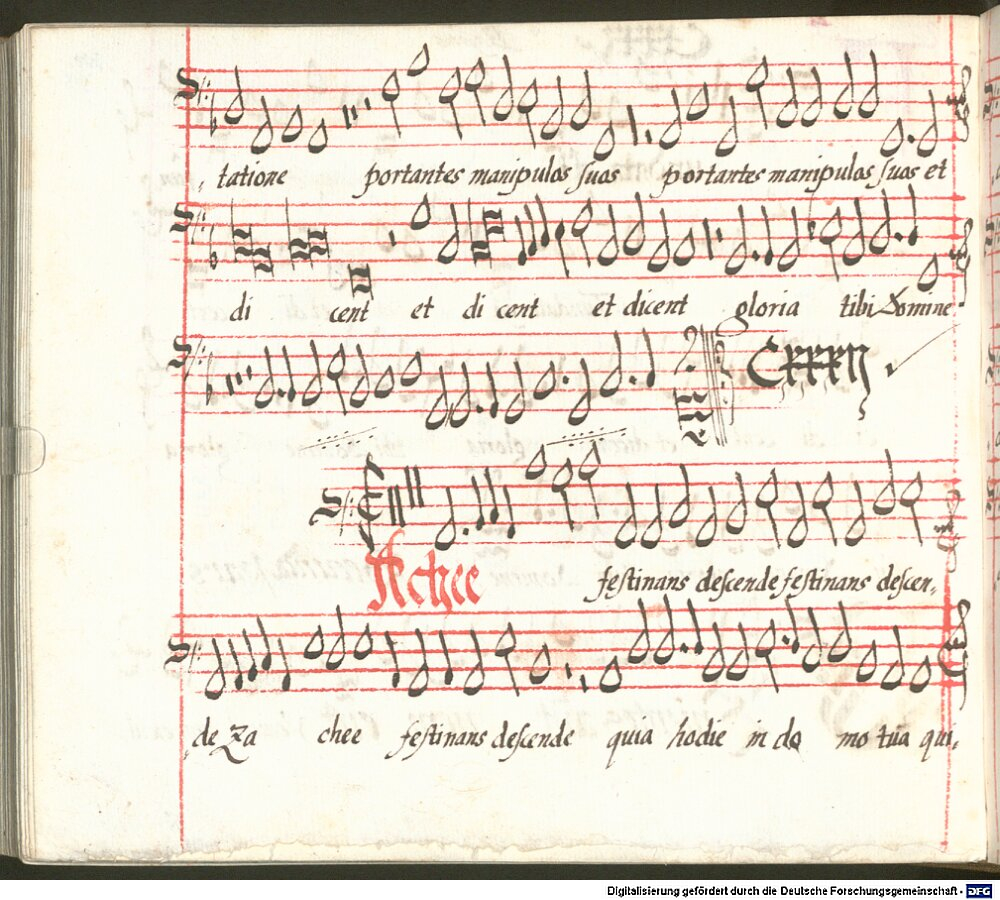 tatione portantes manipulos suos portantes manipulos suos et
di cent et di cent et dicent gloria tibi Domine
festinans descende festinans descen„
„de Za chee festinans descende quia hodie in do mo tũa qui„
Digitalisierung gefördert durch die Deutsche Forschungsgemeinschaft - DFG